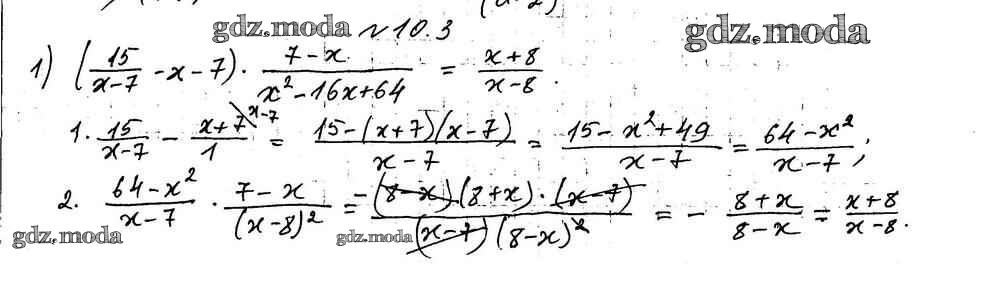 gdz.moda №10.3 gdz.moda
1) (15/(x-7) - x - 7) · (7-x)/(x² - 16x + 64) = (x+8)/(x-8).
1. 15/(x-7) - (x+7)/1 ^(x-7) = (15 - (x+7)(x-7))/(x-7) = (15 - x² + 49)/(x-7) = (64 - x²)/(x-7);
2. (64 - x²)/(x-7) · (7-x)/(x-8)² = (-(8-x)(8+x) · (x-7))/((x-7)(8-x)²) = - (8+x)/(8-x) = (x+8)/(x-8).
gdz.moda gdz.moda